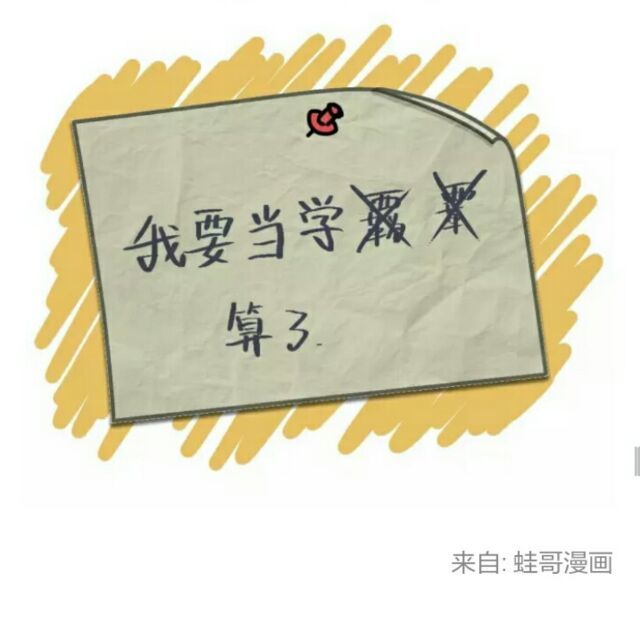 我要当学
算了.
来自: 蛙哥漫画